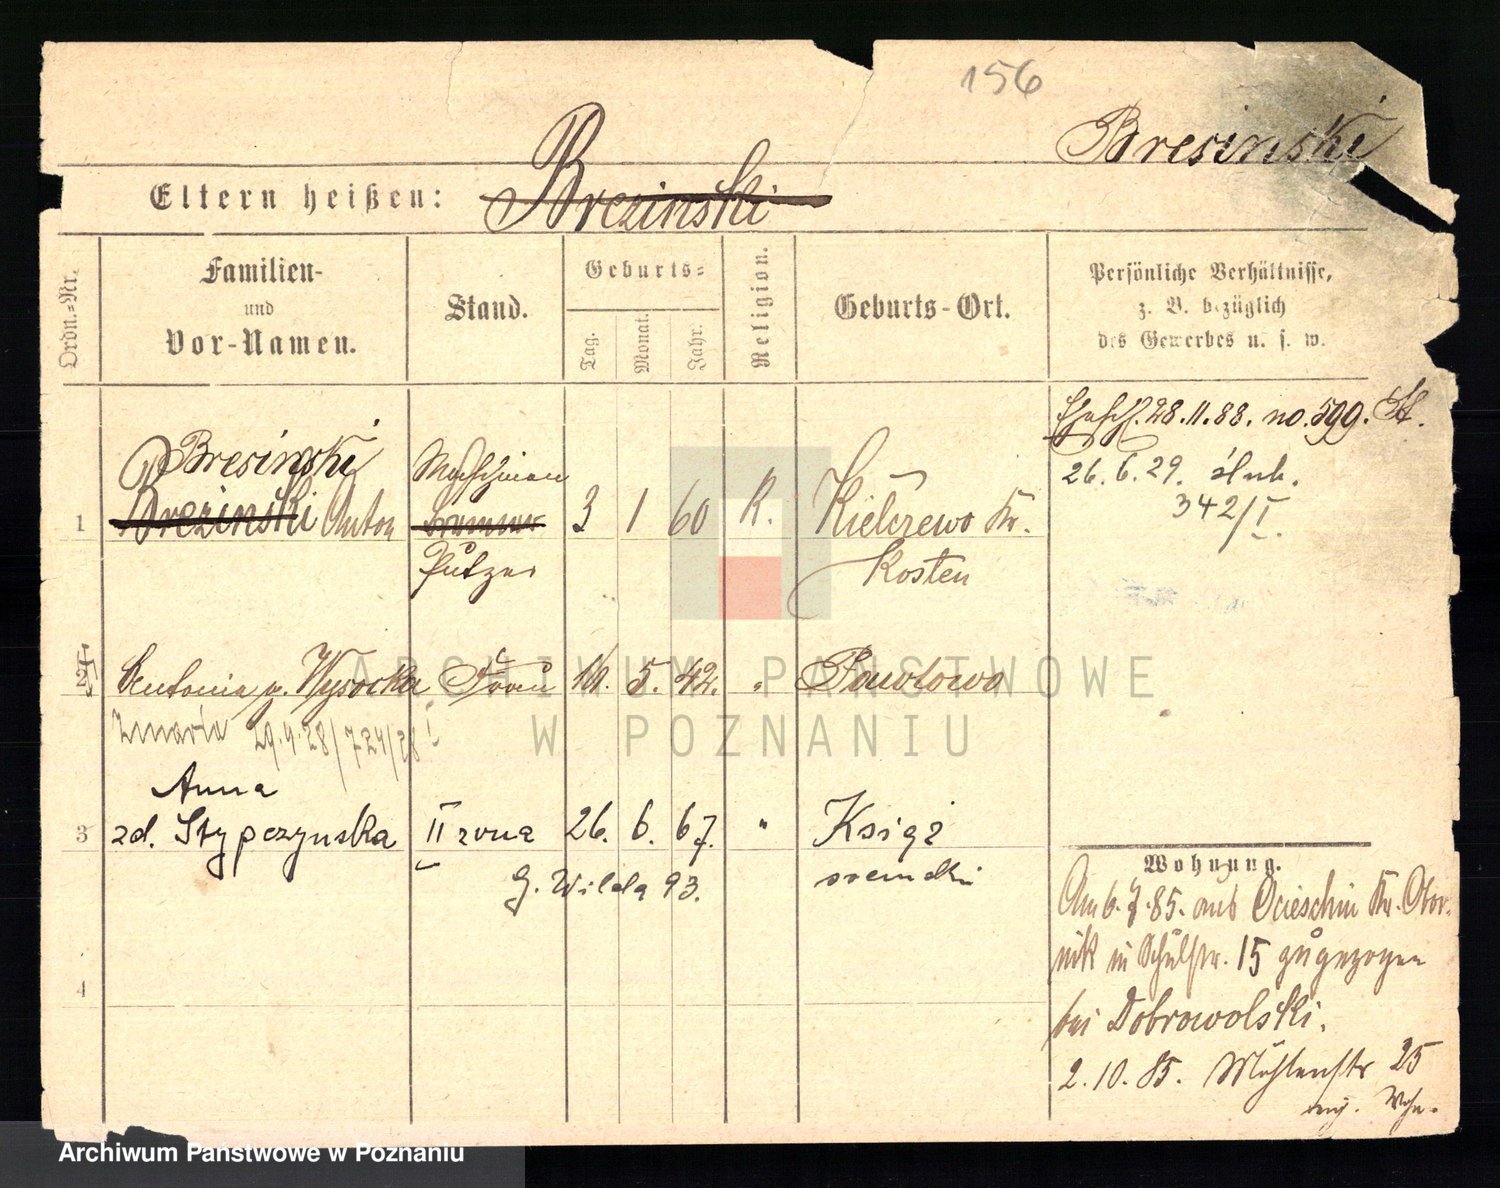 156
Bresinski
Eltern heißen: Brezinski
Ordn.-Nr.
Familien-
und
Vor-Namen.
Stand.
Geburts-
Tag.
Monat.
Jahr.
Religion.
Geburts-Ort.
Persönliche Verhältnisse,
z. B. bezüglich
des Gewerbes u. s. w.
Ehesch. 28.11.88. no. 599. St.
26.6.29. ślub.
342/I.
Bresinski
1 Brezinski Anton
Maschinen
Putzer
3 1 60 K. Kielczewo Kr.
Kosten
2 Antonia g. Wysocka Frau 10. 5. 42. " Powlowo
Zmarła 29.9.28/724/28
Anna
3 zd. Stypczynska II żona 26. 6. 67. " Książ
G. Wilda 93.
4
Wohnung.
Am 6.7.85. aus Ocieschin Kr. Obor-
nik in Schulstr. 15 zugezogen
bei Dobrowolski.
2.10.85. Mühlenstr 25
eig. Wohn.
ARCHIWUM PAŃSTWOWE
W POZNANIU
Archiwum Państwowe w Poznaniu